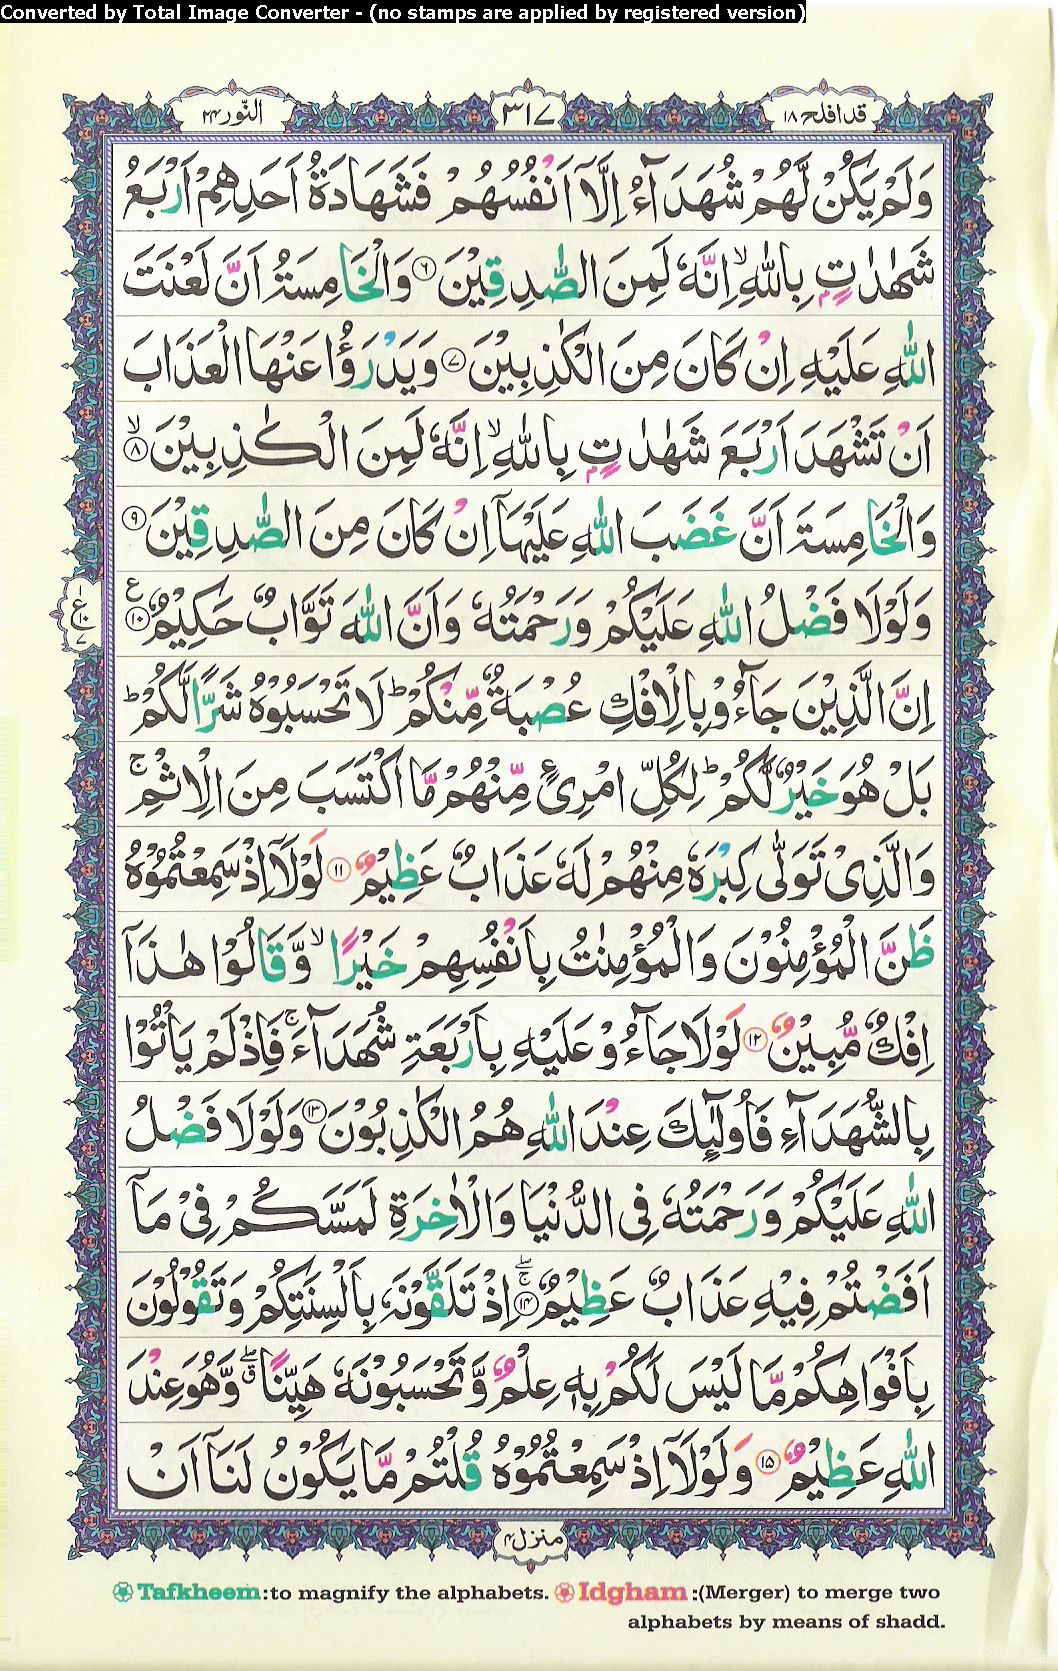 Converted by Total Image Converter - (no stamps are applied by registered version)
قد افلح ١٨
٣١٧
النّور ٢٤
وَلَمْ يَكُنْ لَّهُمْ شُهَدَآءُ اِلَّآ اَنْفُسُهُمْ فَشَهَادَةُ اَحَدِهِمْ اَرْبَعُ
شَهٰدٰتٍۭ بِاللّٰهِ ۙ اِنَّهٗ لَمِنَ الصّٰدِقِيْنَ ۶ وَالْخَامِسَةُ اَنَّ لَعْنَتَ
اللّٰهِ عَلَيْهِ اِنْ كَانَ مِنَ الْكٰذِبِيْنَ ۷ وَيَدْرَؤُا عَنْهَا الْعَذَابَ
اَنْ تَشْهَدَ اَرْبَعَ شَهٰدٰتٍۭ بِاللّٰهِ ۙ اِنَّهٗ لَمِنَ الْكٰذِبِيْنَ ۙ ۸
وَالْخَامِسَةَ اَنَّ غَضَبَ اللّٰهِ عَلَيْهَآ اِنْ كَانَ مِنَ الصّٰدِقِيْنَ ۹
وَلَوْلَا فَضْلُ اللّٰهِ عَلَيْكُمْ وَرَحْمَتُهٗ وَاَنَّ اللّٰهَ تَوَّابٌ حَكِيْمٌ ۱۰ ع
ع ١٠ ٧
اِنَّ الَّذِيْنَ جَآءُوْ بِالْاِفْكِ عُصْبَةٌ مِّنْكُمْ ؕ لَا تَحْسَبُوْهُ شَرًّا لَّكُمْ ؕ
بَلْ هُوَ خَيْرٌ لَّكُمْ ؕ لِكُلِّ امْرِئٍ مِّنْهُمْ مَّا اكْتَسَبَ مِنَ الْاِثْمِ ۚ
وَالَّذِىْ تَوَلّٰى كِبْرَهٗ مِنْهُمْ لَهٗ عَذَابٌ عَظِيْمٌ ۱۱ لَوْلَآ اِذْ سَمِعْتُمُوْهُ
ظَنَّ الْمُؤْمِنُوْنَ وَالْمُؤْمِنٰتُ بِاَنْفُسِهِمْ خَيْرًا ۙ وَّقَالُوْا هٰذَآ
اِفْكٌ مُّبِيْنٌ ۱۲ لَوْلَا جَآءُوْ عَلَيْهِ بِاَرْبَعَةِ شُهَدَآءَ ۚ فَاِذْ لَمْ يَاْتُوْا
بِالشُّهَدَآءِ فَاُولٰٓئِكَ عِنْدَ اللّٰهِ هُمُ الْكٰذِبُوْنَ ۱۳ وَلَوْلَا فَضْلُ
اللّٰهِ عَلَيْكُمْ وَرَحْمَتُهٗ فِى الدُّنْيَا وَالْاٰخِرَةِ لَمَسَّكُمْ فِىْ مَآ
اَفَضْتُمْ فِيْهِ عَذَابٌ عَظِيْمٌ ۚۖ ۱۴ اِذْ تَلَقَّوْنَهٗ بِاَلْسِنَتِكُمْ وَتَقُوْلُوْنَ
بِاَفْوَاهِكُمْ مَّا لَيْسَ لَكُمْ بِهٖ عِلْمٌ وَّتَحْسَبُوْنَهٗ هَيِّنًا ۖق وَّهُوَ عِنْدَ
اللّٰهِ عَظِيْمٌ ۱۵ وَلَوْلَآ اِذْ سَمِعْتُمُوْهُ قُلْتُمْ مَّا يَكُوْنُ لَنَآ اَنْ
منزل ۴
Tafkheem :to magnify the alphabets. Idgham :(Merger) to merge two
alphabets by means of shadd.